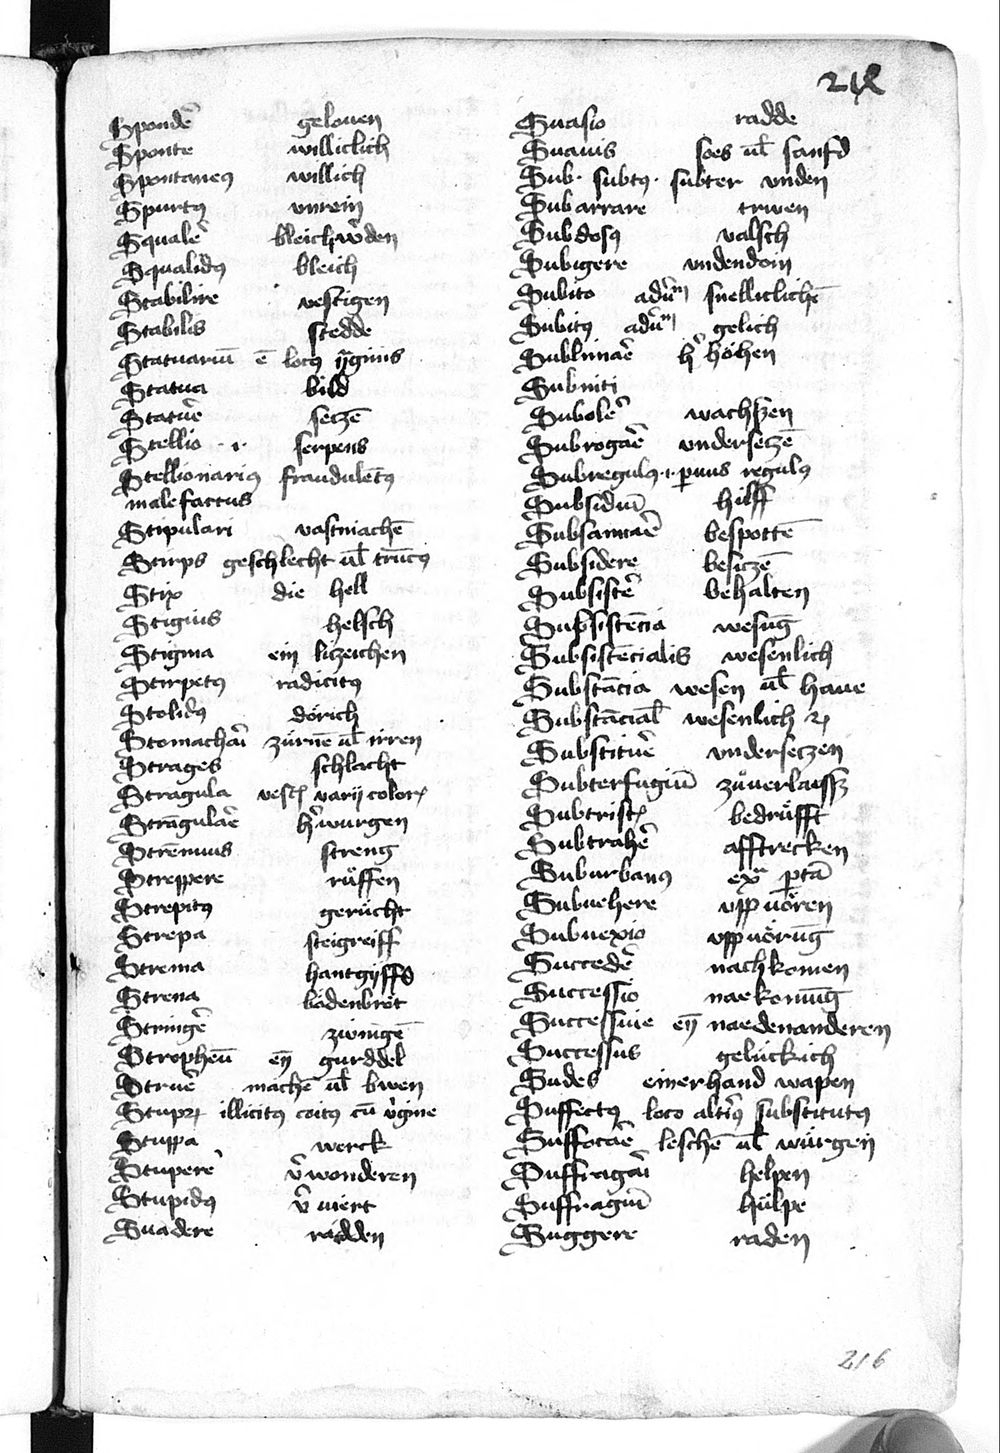 Spondē gelouen
Sponte williclich
Spontaneꝰ willich
Spurtꝰ vnrein
Squalē bleich w̄den
Squalidꝰ bleich
Stabilire vestigen
Stabilis stedde
Statuariū ē locꝰ ymaginis
Statua bild
Statuē seczē
Stellio .i. serpens
Stellionariꝰ fraudulētꝰ
malefactus
Stipulari vastmachē
Stirps geschlecht ul̄ trūcꝰ
Stix die hell
Stigius helsch
Stigma ein liczeichen
Stirpetꝰ radicitꝰ
Stolidꝰ dörich
Stomachāri zürnē ul̄ irren
Strages schlacht
Stragula vestꝭ varij colorꝭ
Strāgulāē h̄wurgen
Strēnuus streng
Streppere rüffen
Strepitꝰ gerücht
Strepa steigreiff
Strema hantgyffs
Strena bädenbröt
Stringē zwingē
Stropheū eyn gurddel
Struē machē ul̄ bwen
Stuprꝭ illicitꝰ coitꝰ cū v̄gine
Stuppa werck
Stuperē v̄wonderen
Stupidꝰ v̄ niert
Suadere rädden
Suasio radde
Suauis soes ul̄ sanfd
Sub. subtꝰ. subter vnden
Subarrare trwen
Subdolꝰ valsch
Subigere vndendoin
Subito snelliclichē
Subitꝰ gelich
Sublimāē h̄ höhen
Subniti
Subolē wachszen
Subrogāē vnderseczē
Subregulꝰ .i. ꝑuus regulꝰ
Subsidiū hilff
Subsannāē bespottē
Subsidere besiczē
Subsistē behalten
Subsistēcia wesūg
Subsistēcialis wesenlich
Substācia wesen ul̄ haue
Substāciāl wesenlich
Substituē vnderseczen
Subterfugiū züuerlaissz
Subtristꝭ bedrüfft
Subtrahē afftrecken
Suburbanꝰ ex̄ ꝑtā
Subuehere vpp uören
Subuexio vpp uörūg
Succedē nachkomen
Successio naekomūg
Successiue eyn naedenanderen
Successus gelückich
Sudes einerhand wapen
Suffectꝰ loco altīꝰ substitutꝰ
Suffocāē leschē ul̄ würgen
Suffragāri helpen
Suffragiū hülpe
Suggere raden
216